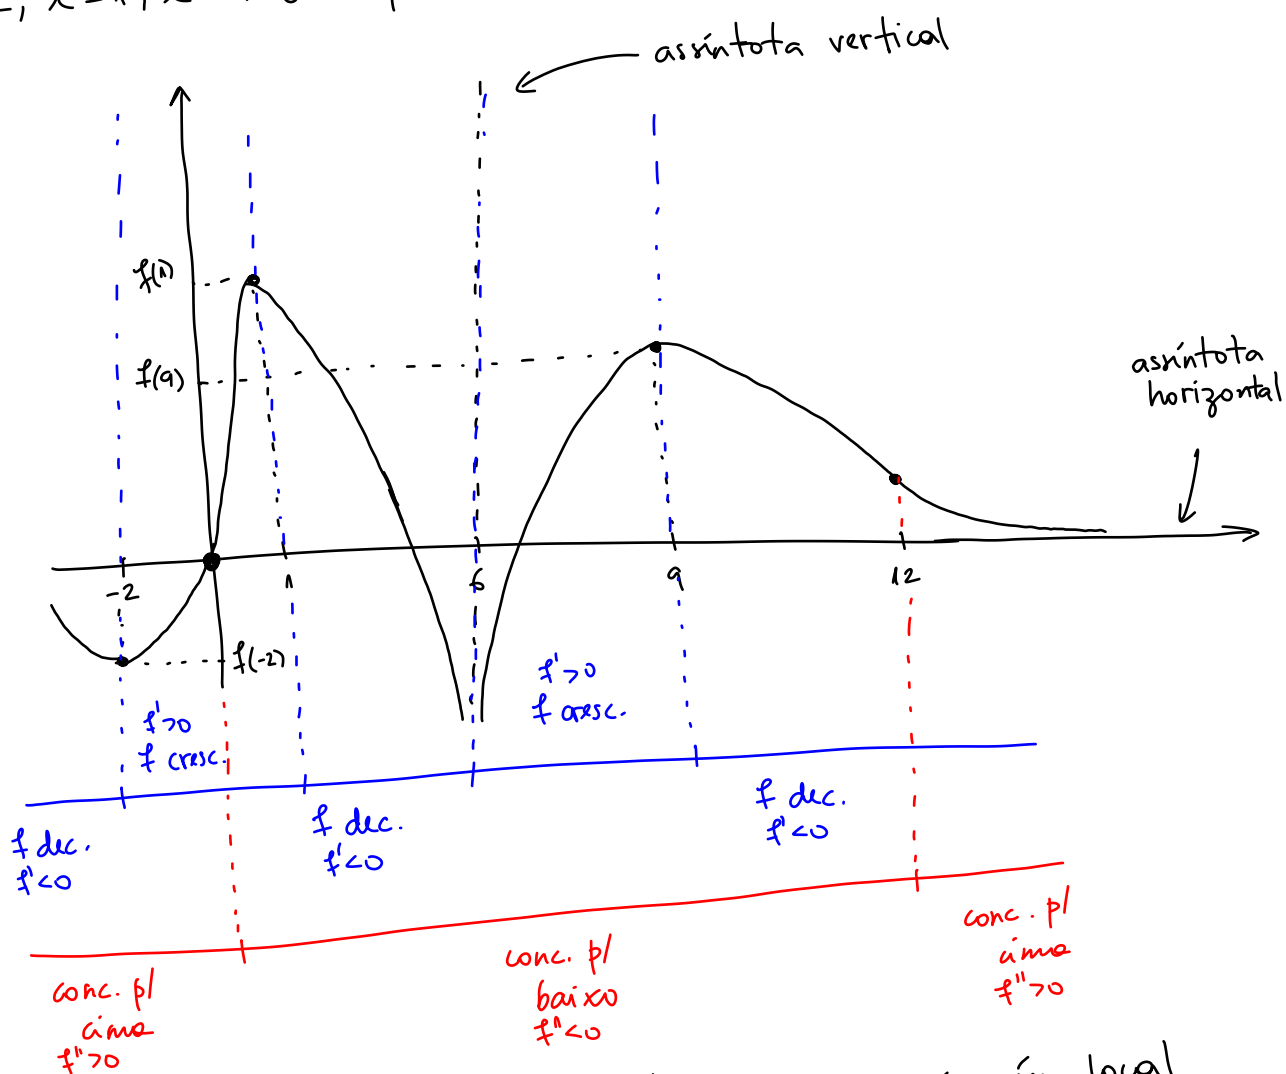 assíntota vertical
f(1)
f(9)
assíntota
horizontal
-2
1
6
9
12
f(-2)
f'>0
f cresc.
f'>0
f cresc.
f dec.
f'<0
f dec.
f'<0
f dec.
f'<0
conc. p/
cima
f">0
conc. p/
baixo
f"<0
conc. p/
cima
f">0
local